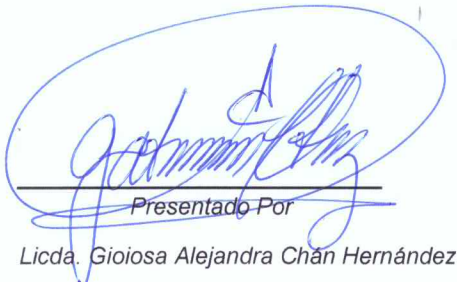 Presentado Por
Licda. Gioiosa Alejandra Chán Hernández